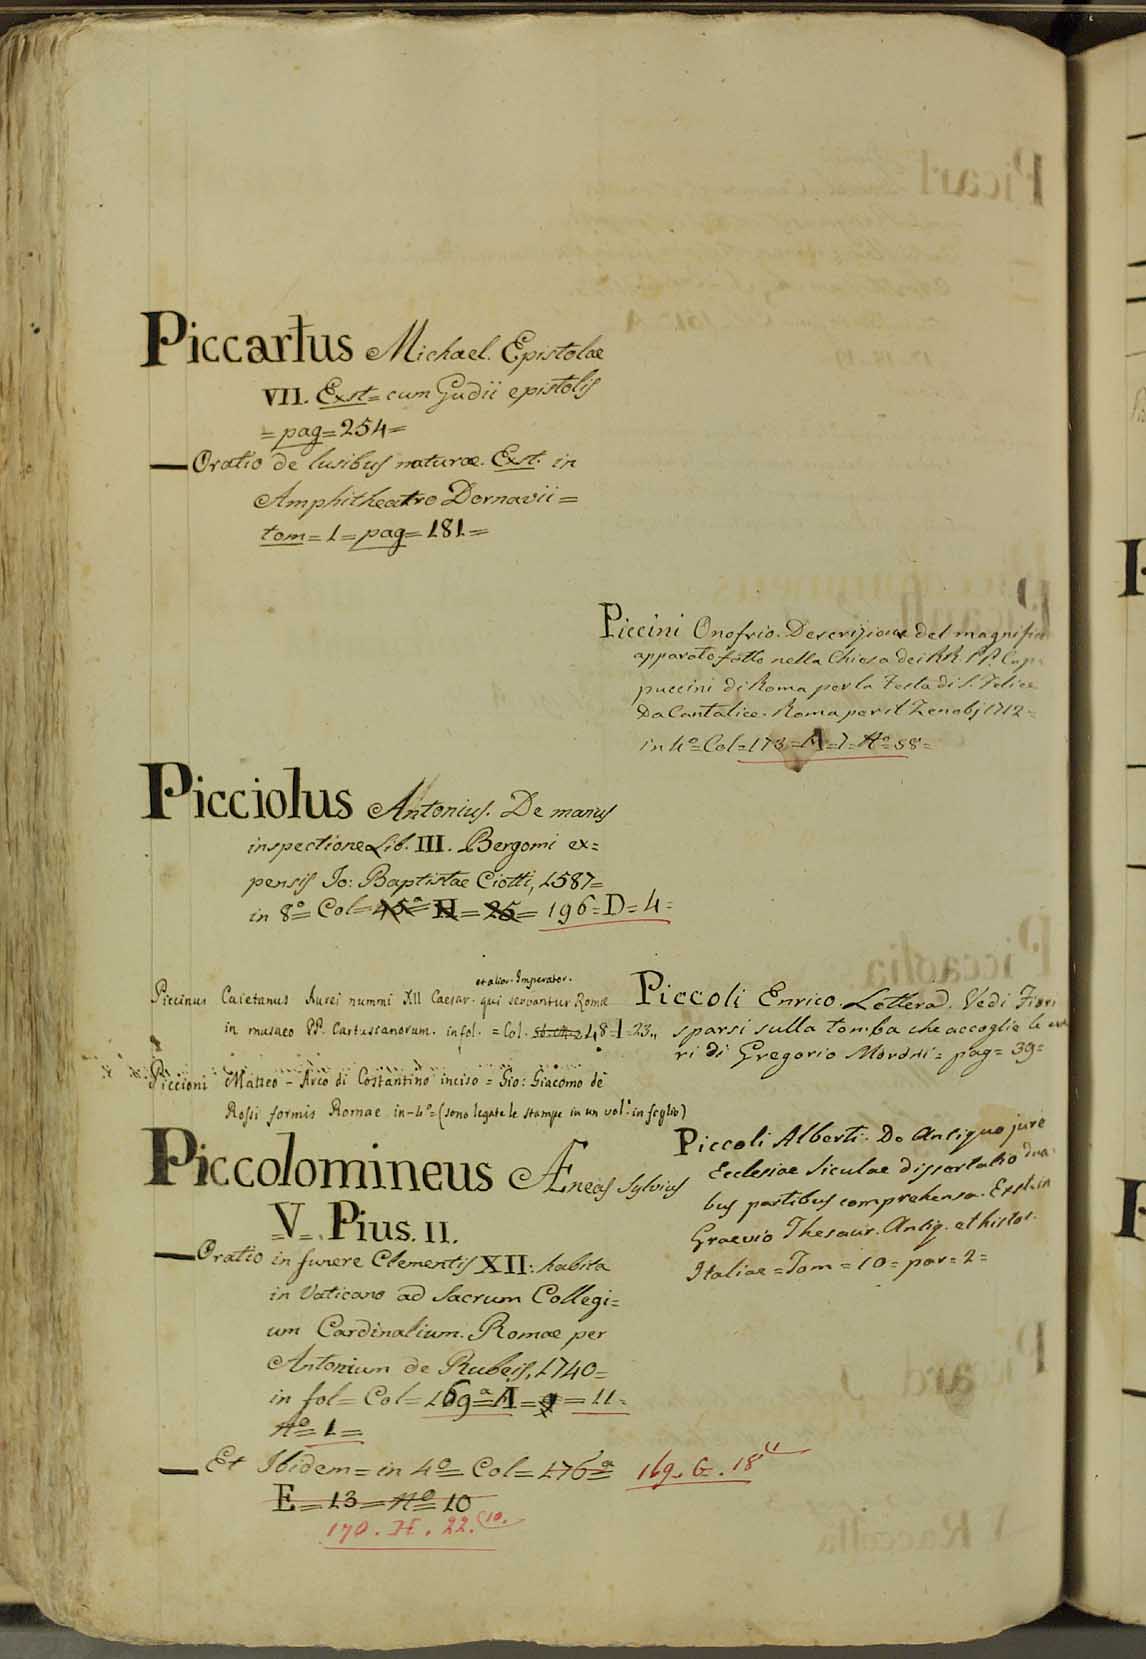 Piccartus Michael. Epistolae
VII. Exst= cum Gudii epistolis
= pag= 254=
— Oratio de lusibus naturae. Exst. in
Amphitheatro Dornavii=
tom= 1= pag= 181=
Piccini Onofrio. Descrizione del magnifi
apparato fatto nella Chiesa dei RR. PP. Cap
puccini di Roma per la Festa di S. Felice
Da Cantalice. Roma per il Zenobj 1712=
in 4º= Col= 173= A= 7= Nº= 88=
Picciolus Antonius. De manus
inspectione Lib. III. Bergomi ex=
pensis Io: Baptistae Ciotti, 1587=
in 8º= Col= 45ª= H= 25= 196= D= 4=
et alior. Imperator.
Piccinus Caietanus Aurei nummi XII Caesar. qui servantur Romae
in musaeo PP. Cartusianorum. in fol. = Col. 48= I= 23..
Piccoli Enrico. Letterad. Vedi Fiori
sparsi sulla tomba che accoglie le
ri di Gregorio Morosi= pag= 39=
Piccioni Matteo - Arco di Costantino inciso = Gio: Giacomo de
Rossi formis Romae in-4º= (sono legate le stampe in un vol. in foglio)
Piccolomineus Æneas Sylvius
=V=. Pius. II.
Piccoli Alberti. De Antiquo jure
Ecclesiae Siculae dissertatio dua
bus partibus comprehensa. Exst. in
Graevio Thesaur. Antiq. et histor.
Italiae= Tom= 10= par= 2=
— Oratio in funere Clementis XII: habita
in Vaticano ad Sacrum Collegi=
um Cardinalium. Romae per
Antonium de Rubeis, 1740=
in fol= Col= 169ª= A= 9= 11=
Nº= 1=
— Et Ibidem= in 4º= Col= 176ª= 169. G. 18
E= 13= Nº 10
170. H. 22. (10.